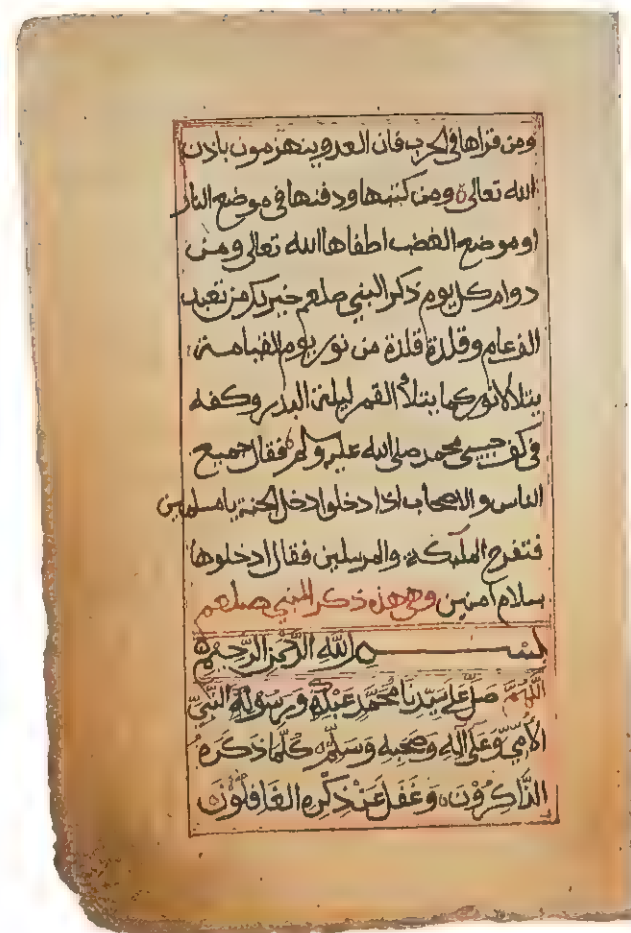 ومن قراها في الحرب فان العدو ينهزمون باذن
الله تعالى ومن كتبها ودفنها في موضع النار
او موضع الغضب اطفاها الله تعالى ومن
دوام كل يوم ذكر النبي صلعم خير لك من تعبد
الف عام وقلدة قلدة من نور يوم القيامة
يتلألأ نور كما يتلأ القمر ليلة البدر وكفه
في كف حبيبي محمد صلى الله عليه وله فقال جميع
الناس والاصحاب اذا دخلوا ادخل الجنة يا مسلمين
فتفرح الملىكة والمرسلين فقال ادخلوها
بسلام آمنين وهي هذه ذكر النبي صلعم
بسم الله الرَّحْمٰنِ الرَّحِيمِ
اَللّٰهُمَّ صَلِّ عَلَى سَيِّدِنَا مُحَمَّدٍ عَبْدِكَ وَرَسُولِكَ النَّبِيِّ
الْأُمِّيِّ وَعَلَى آلِهِ وَصَحْبِهِ وَسَلِّمْ كُلَّمَا ذَكَرَهُ
الذَّاكِرُوْنَ وَغَفَلَ عَنْ ذِكْرِهِ الغَافِلُوْنَ